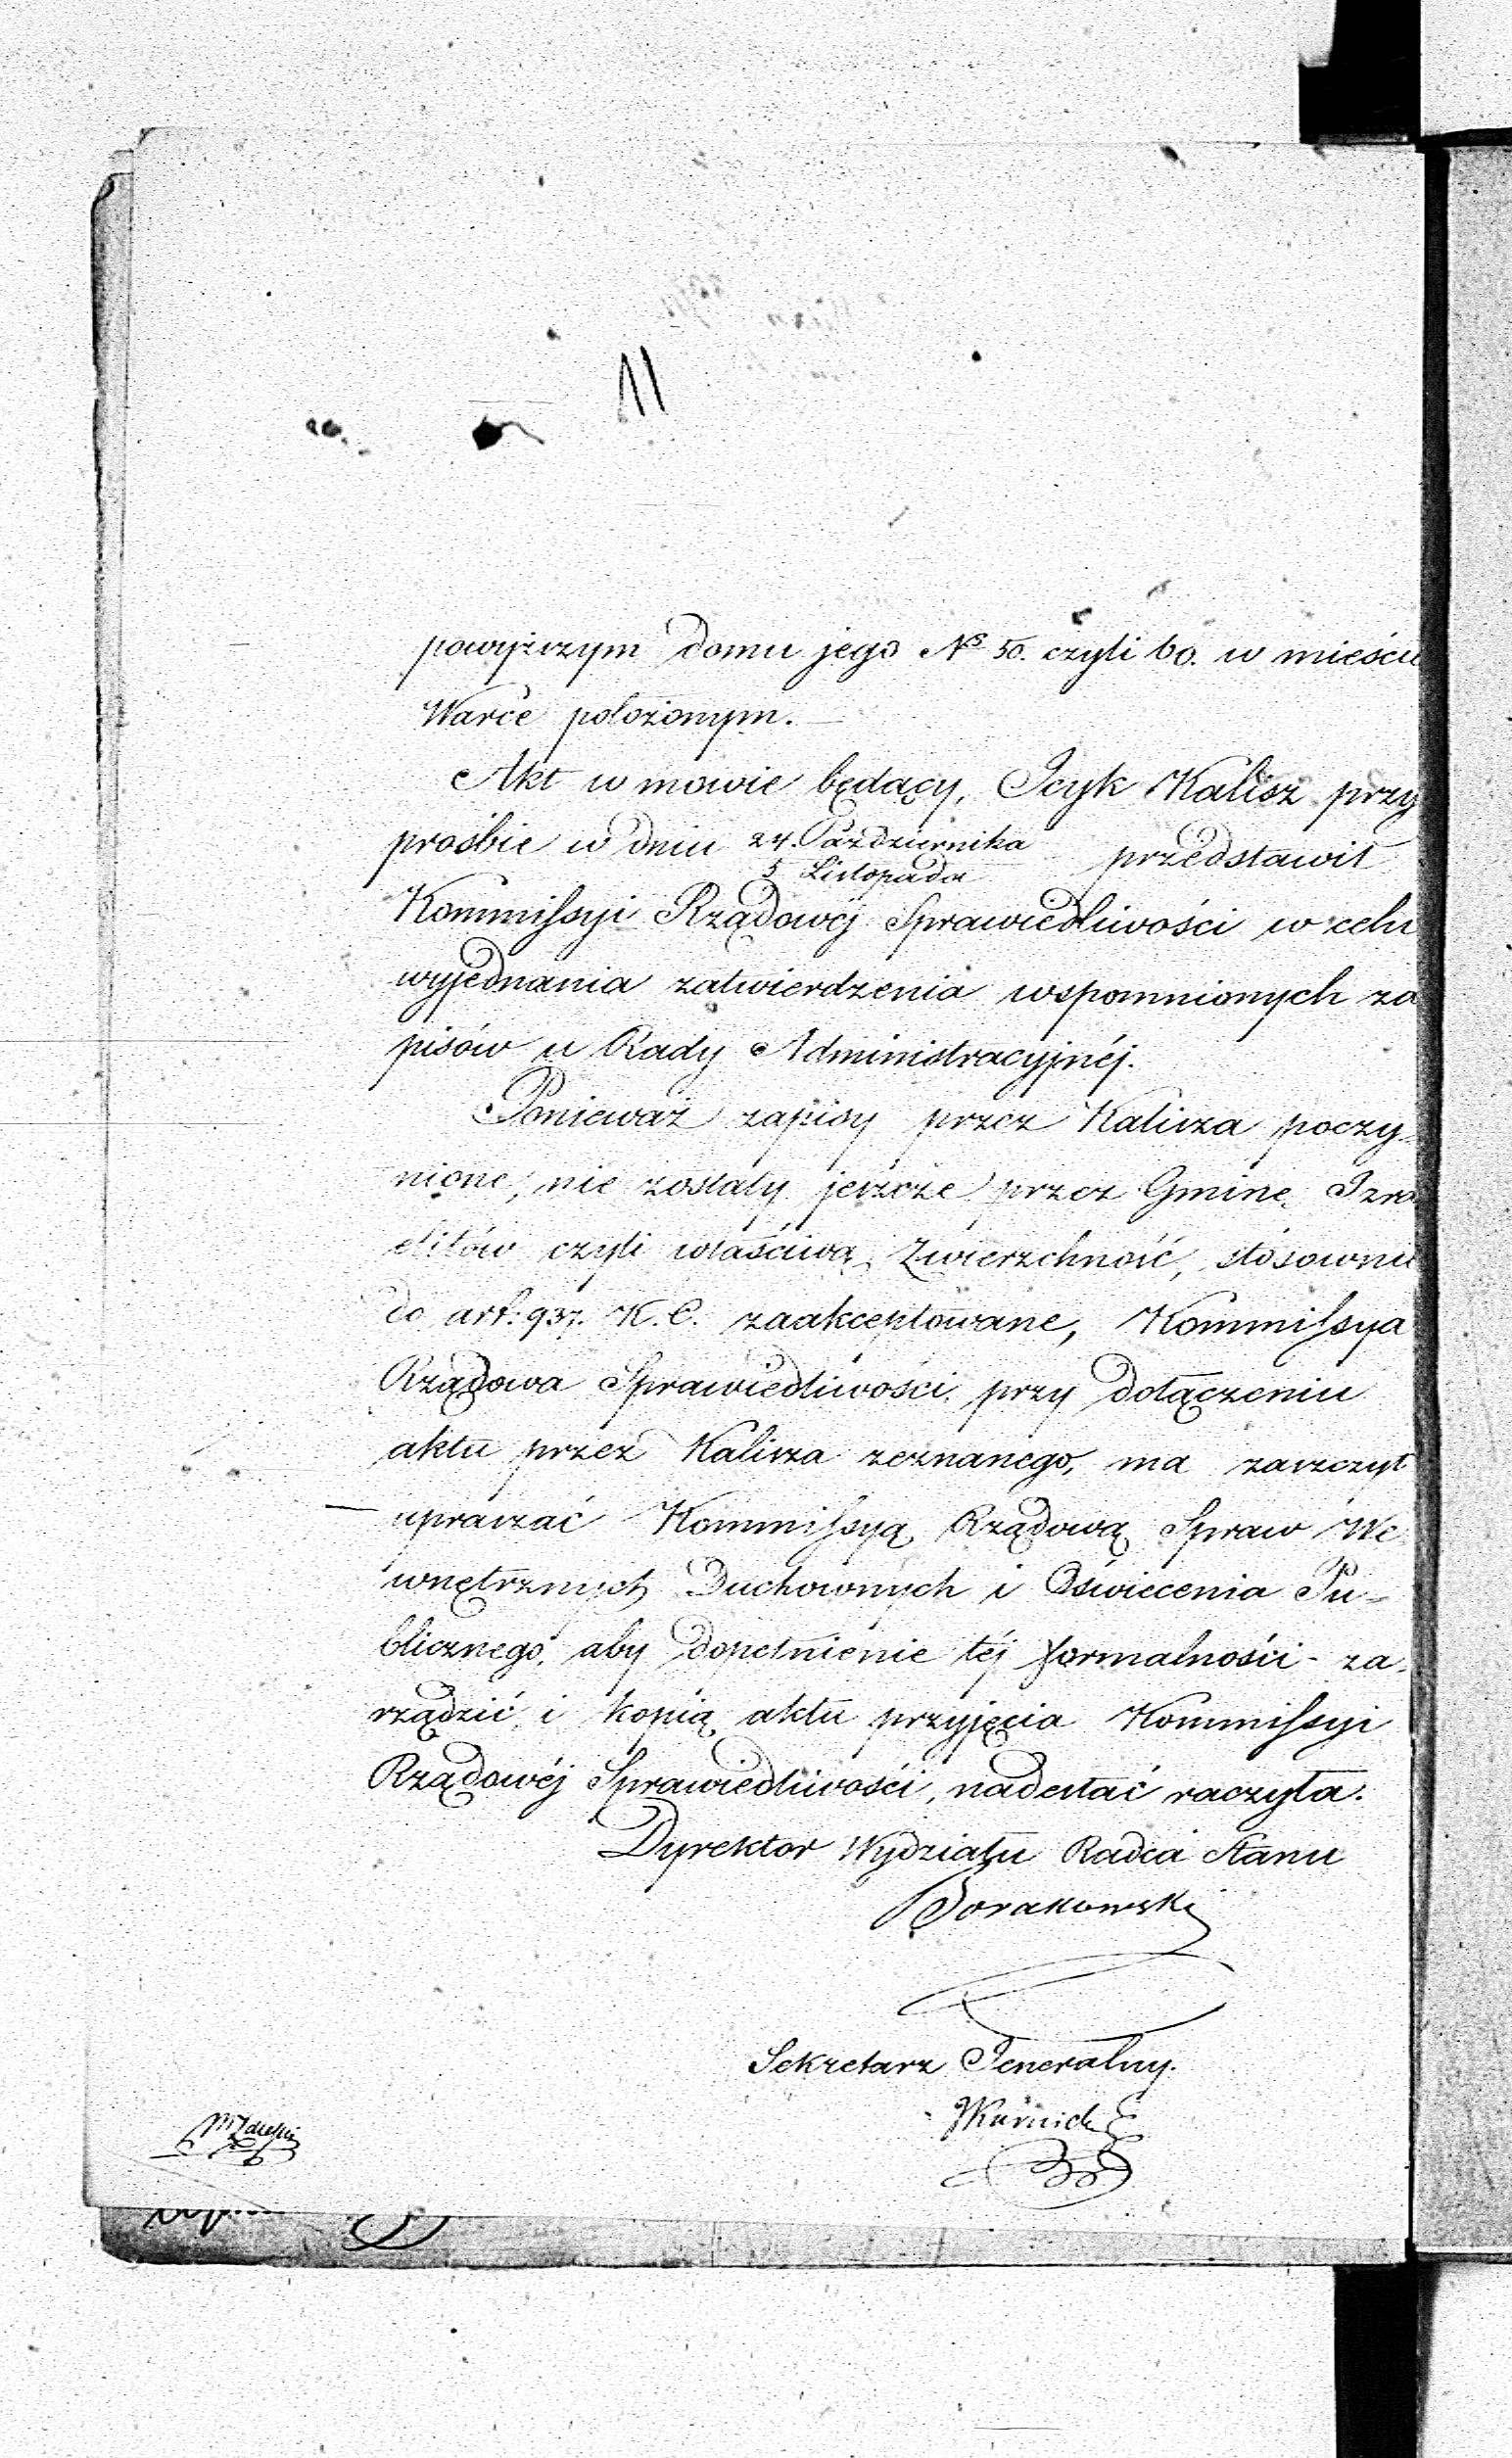 11
powyższym domu jego No 50. czyli 60. w mieście
Warce położonym.
Akt w mowie będący, Icyk Kalisz przy
prośbie w dniu 24. Października
5 Listopada przedstawił
Kommissyi Rządowej Sprawiedliwości w celu
wyjednania zatwierdzenia wspomnionych za
pisów u Rady Administracyjnéj.
Ponieważ zapisy przez Kalisza poczy-
nione, nie zostały jeszcze przez Gminę Izra
elitów czyli właściwą Zwierzchność, stósownie
do art: 937. K. C. zaakceptowane, Kommissya
Rządowa Sprawiedliwości przy dołączeniu
aktu przez Kalisza zeznanego, ma zaszczyt
upraszać Kommissyą Rządową Spraw We
wnętrznych Duchownych i Oświecenia Pu-
blicznego, aby dopełnienie téj formalności za-
rządzić i kopią aktu przyjęcia Kommissyi
Rządowéj Sprawiedliwości, nadesłać raczyła.
Dyrektor Wydziału Radca Stanu
Sekretarz Jeneralny.